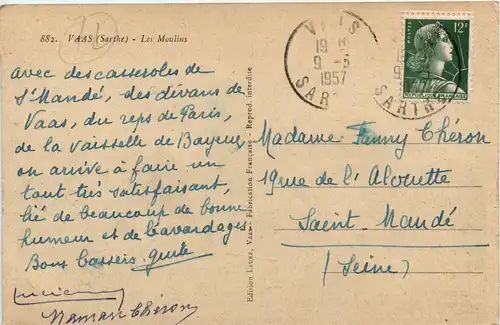 882. VAAS (Sarthe) - Les Moulins
avec des casseroles de
St Mandé, des divans de
Vaas, du reps de Paris,
de la vaisselle de Bayeux
on arrive à faire un
tout très satisfaisant,
lié de beaucoup de bonne
humeur et de bavardages
Bons baisers
Lucienne
Maman Chéron
Fabrication Française - Reprod. interdite
VAAS
9-5
1957
SARTHE
12F
POSTES
REPUBLIQUE FRANÇAISE
Madame Fanny Chéron
19 rue de l'Alouette
Saint-Mandé
(Seine)